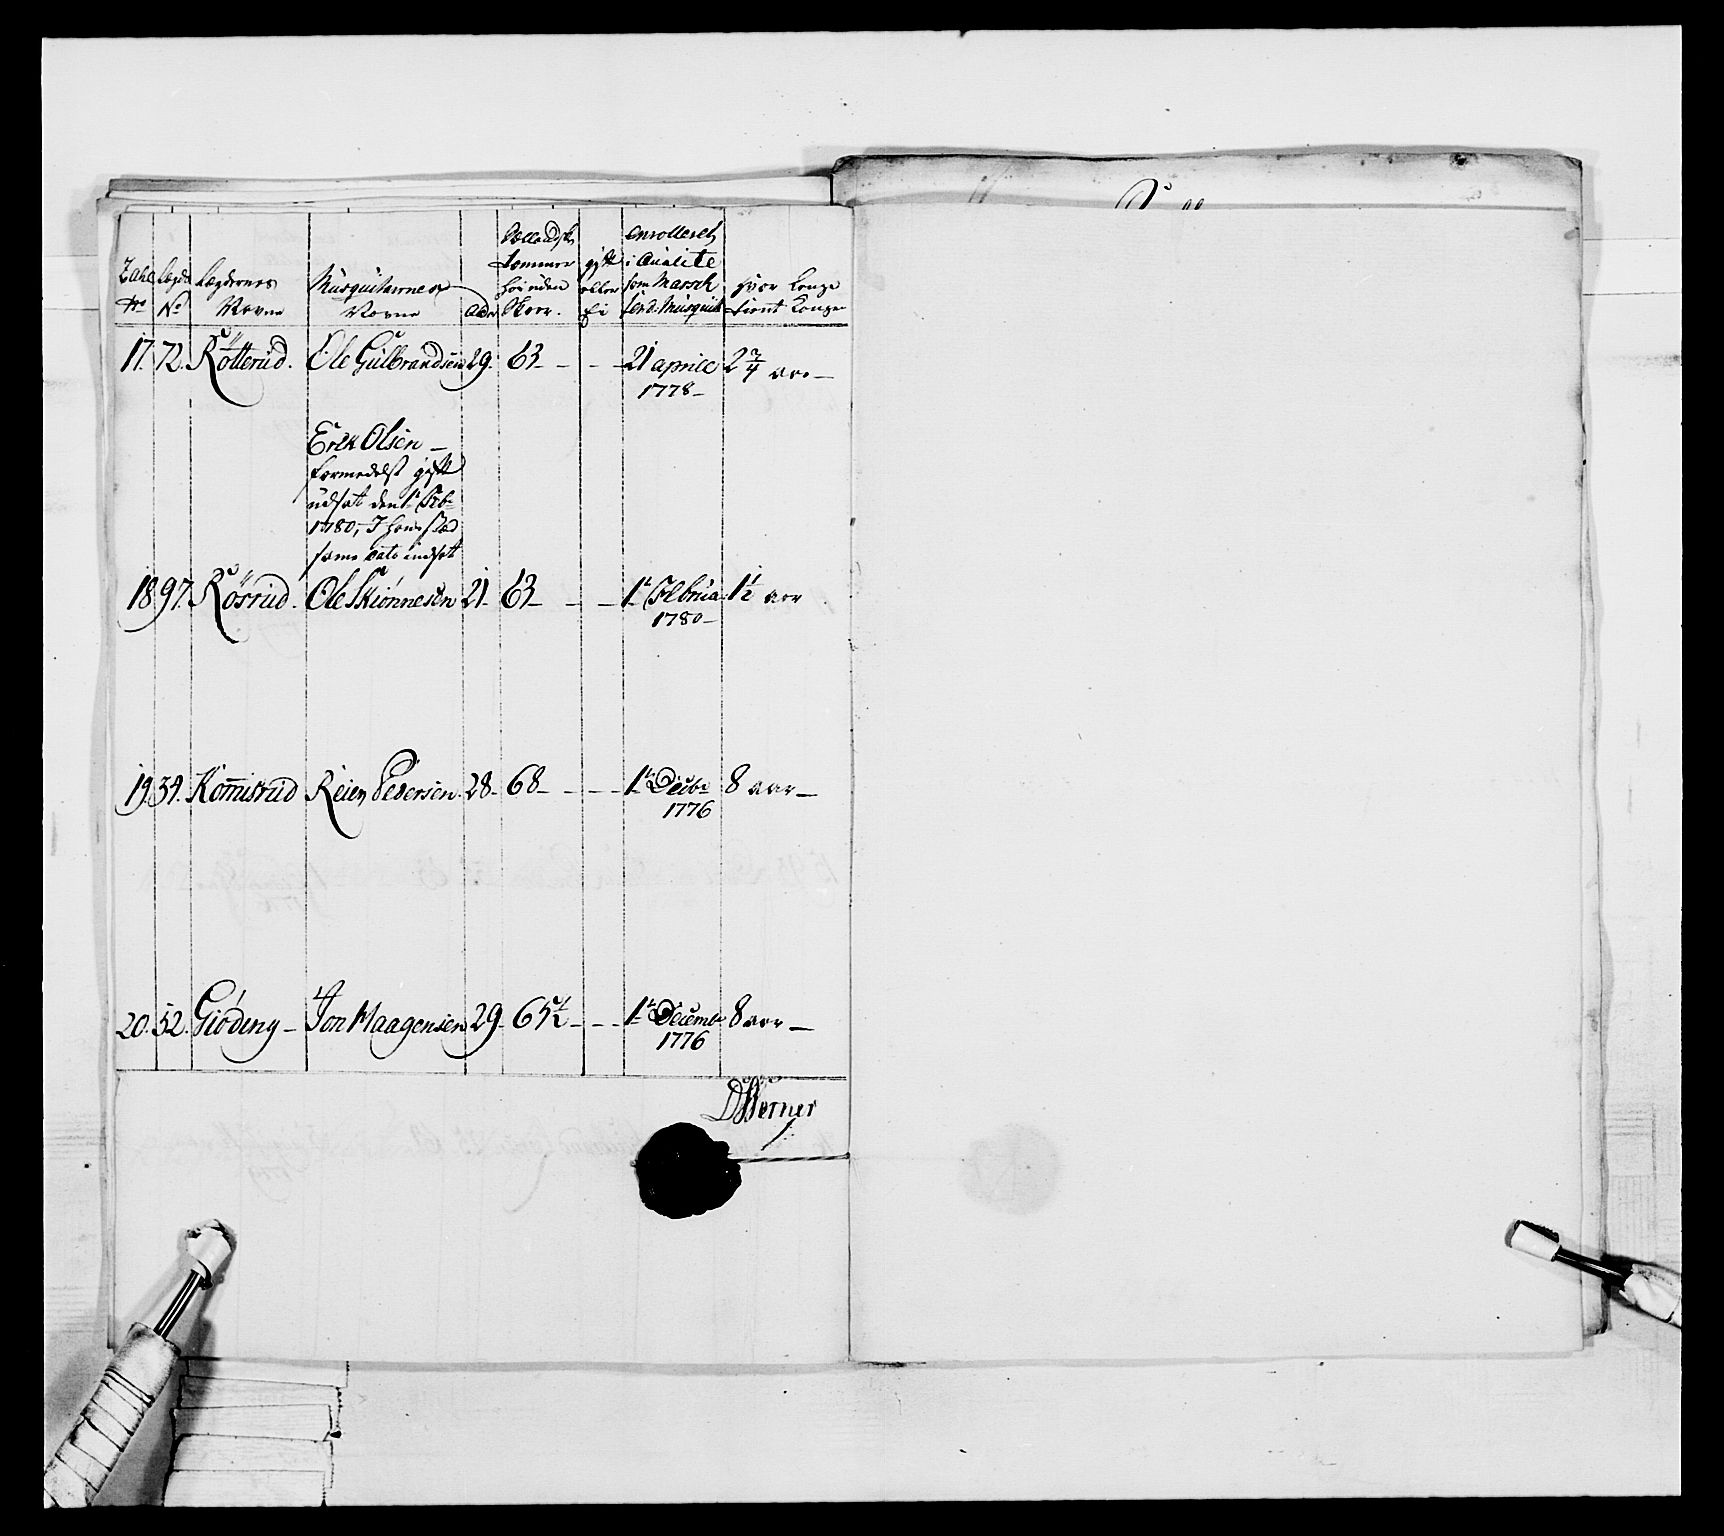 Zahl No | Lægds No | Lægdernes Navne | Musquitairernes Navne | Alder | Hollandske Tommer høi uden Skoer. | gift eller Ei | enrolleret i Qualite som Marsch ferd. Musquit | hvor Lenge tient Konge
17. | 72. | Rötterud. | Ole Gulbrandsen | 29. | 63 – | – | 21 aprill 1778 – | 2 3/4 aar –
Erik Olsen –
formedelst gift
udsat den 1te Feb:
1780, I hans stæd
same dato indsat
18 | 97. | Rösrud. | Ole Skiönnesen | 21 – | 63 – | – | 1te Februa 1780 – | 1 1/2 aar
19. | 34. | Kom̄isrud | Reier Pedersen | 28 – | 68 – | – | 1te Decbr 1776 | 8 aar –
20. | 52. | Giödeng – | Jon Haagensen | 29 – | 65 1/2 – | – | 1te Decembr 1776 | 8 aar –
D Werner